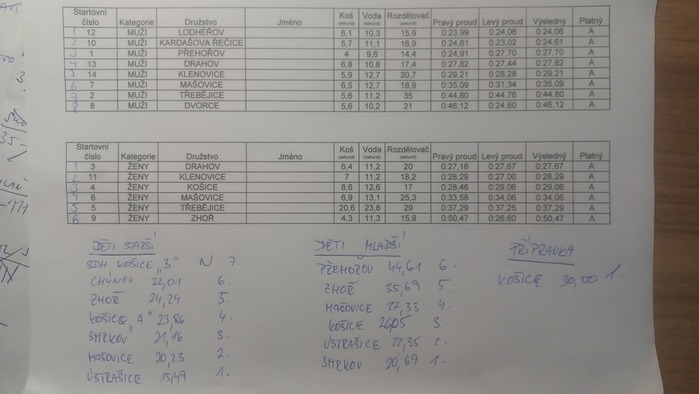 Startovní číslo Kategorie Družstvo Jméno Koš (sekund) Voda (sekund) Rozdělovač (sekund) Pravý proud Levý proud Výsledný Platný
1 12 MUŽI LODHÉŘOV 6,1 10,3 15,9 0:23,99 0:24,06 0:24,06 A
2 10 MUŽI KARDAŠOVA ŘEČICE 5,7 11,1 16,9 0:24,61 0:23,02 0:24,61 A
3 1 MUŽI PŘEHOŘOV 4 9,6 14,4 0:24,91 0:27,70 0:27,70 A
4 13 MUŽI DRAHOV 6,8 10,8 17,4 0:27,82 0:27,44 0:27,82 A
5 14 MUŽI KLENOVICE 5,9 12,7 20,7 0:29,21 0:28,28 0:29,21 A
6 7 MUŽI MAŠOVICE 6,5 12,7 18,9 0:35,09 0:31,34 0:35,09 A
7 2 MUŽI TŘEBĚJICE 5,6 11,2 35 0:44,80 0:44,76 0:44,80 A
8 8 MUŽI DVORCE 5,6 10,2 21 0:46,12 0:24,60 0:46,12 A
Startovní číslo Kategorie Družstvo Jméno Koš (sekund) Voda (sekund) Rozdělovač (sekund) Pravý proud Levý proud Výsledný Platný
1 3 ŽENY DRAHOV 6,4 11,2 20 0:27,18 0:27,67 0:27,67 A
2 11 ŽENY KLENOVICE 7 11,2 18 0:28,29 0:27,00 0:28,29 A
3 4 ŽENY KOŠICE 8,6 12,6 17 0:28,46 0:29,06 0:29,06 A
4 6 ŽENY MAŠOVICE 6,9 13,1 25,3 0:33,58 0:34,06 0:34,06 A
5 5 ŽENY TŘEBĚJICE 20,6 23,8 29 0:37,29 0:37,25 0:37,29 A
6 9 ŽENY ZHOŘ 4,3 11,3 15,9 0:50,47 0:26,60 0:50,47 A
DĚTI STARŠÍ
SDH KOŠICE "B" N 7.
CHÝNOV 22,01 6.
ZHOŘ 24,24 5.
KOŠICE "A" 23,86 4.
SMRKOV 21,16 3.
MAŠOVICE 20,23 2.
ÚSTRAŠICE 15,49 1.
DĚTI MLADŠÍ
PŘEHOŘOV 44,61 6.
ZHOŘ 35,69 5.
MAŠOVICE 27,33 4.
KOŠICE 26,05 3.
ÚSTRAŠICE 22,35 2.
SMRKOV 20,69 1.
PŘÍPRAVKA
KOŠICE 30,00 1.